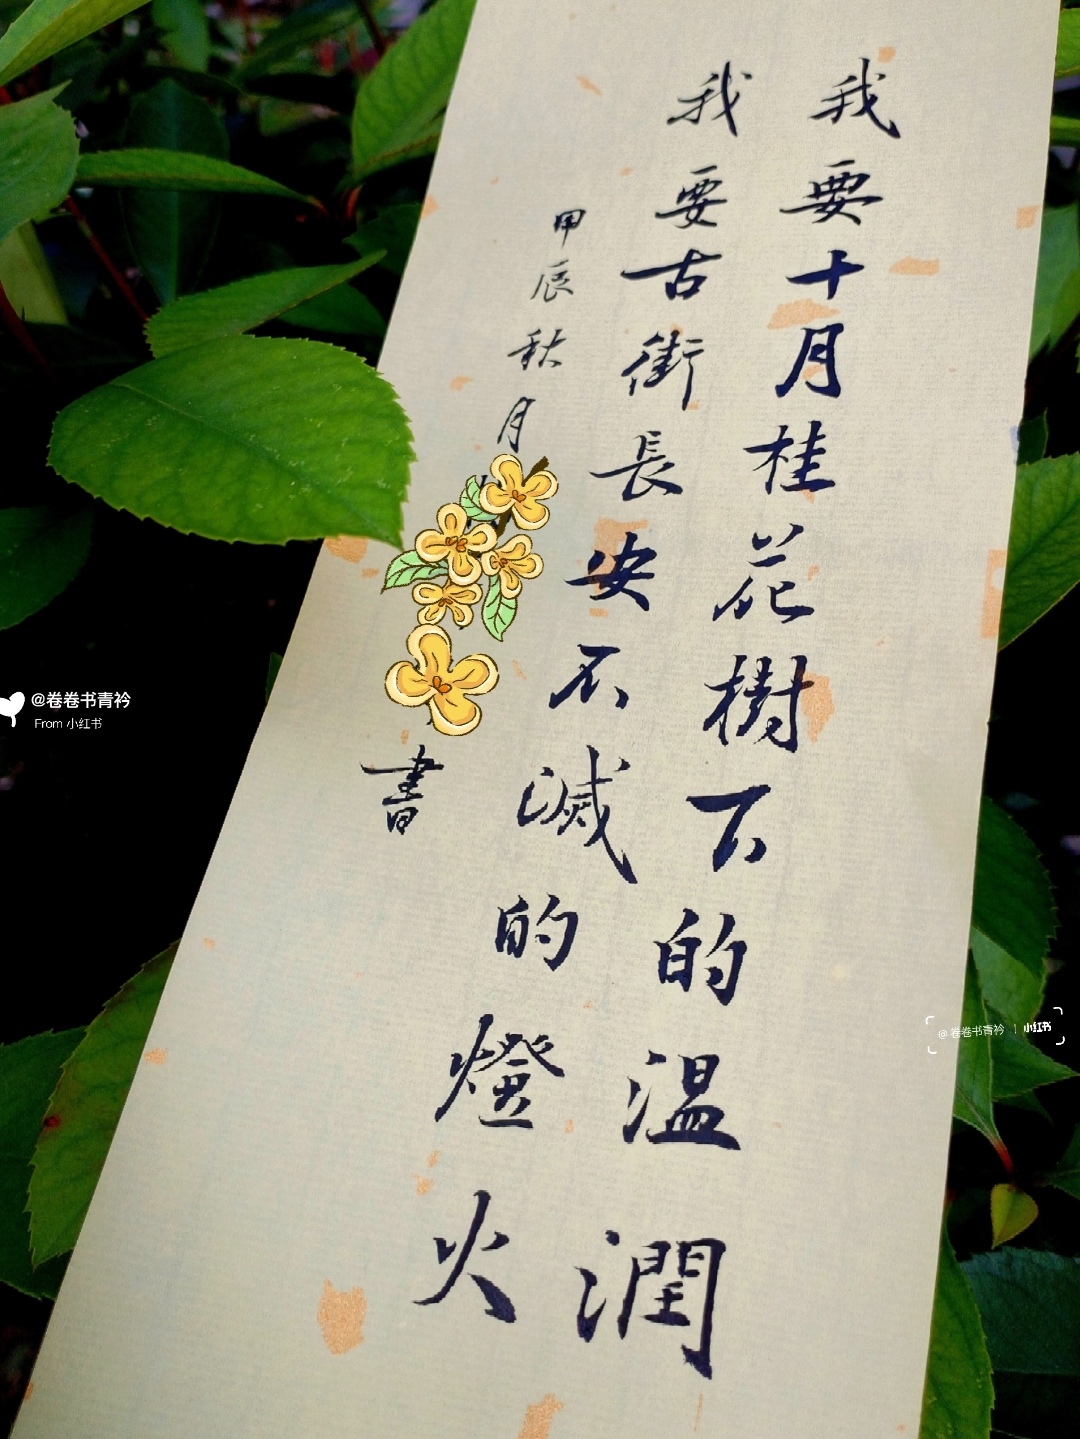 我要十月桂花樹下的温潤
我要古街長安不滅的燈火
甲辰秋月
書
@卷卷书青衿
From 小红书
@卷卷书青衿 | 小红书